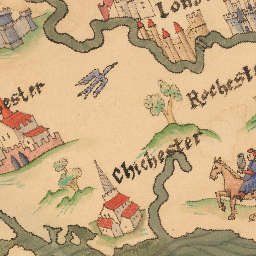 Lon
ester
Rocheste
Chichester